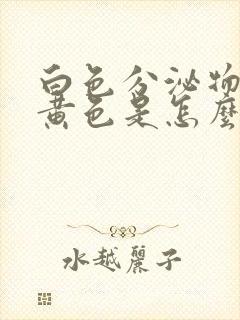 白色分泌物
黄色是怎麼
水越麗子